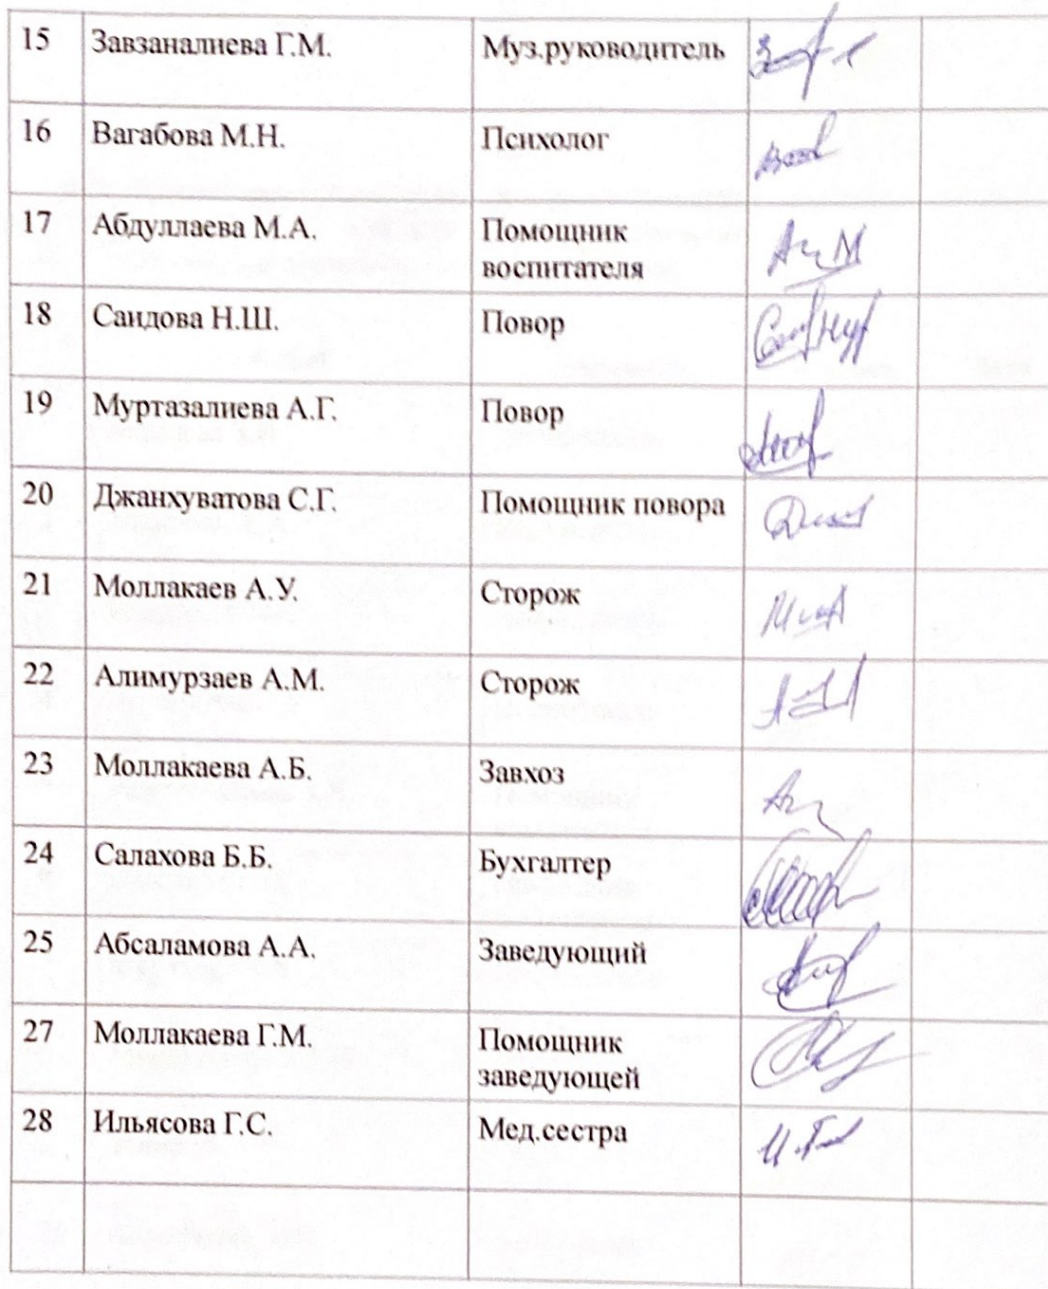 15 Завзаналиева Г.М. Муз.руководитель
16 Вагабова М.Н. Психолог
17 Абдуллаева М.А. Помощник
воспитателя
18 Саидова Н.Ш. Повор
19 Муртазалиева А.Г. Повор
20 Джанхуватова С.Г. Помощник повора
21 Моллакаев А.У. Сторож
22 Алимурзаев А.М. Сторож
23 Моллакаева А.Б. Завхоз
24 Салахова Б.Б. Бухгалтер
25 Абсаламова А.А. Заведующий
27 Моллакаева Г.М. Помощник
заведующей
28 Ильясова Г.С. Мед.сестра